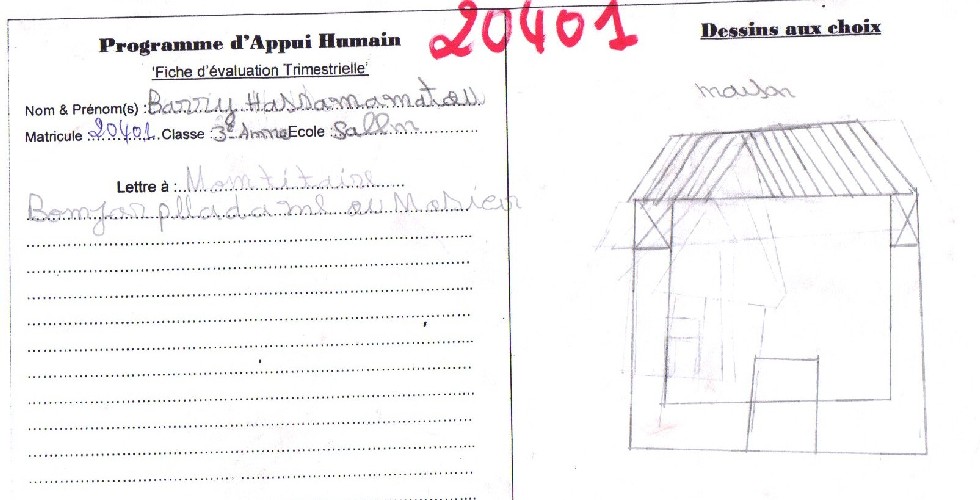 20401
Programme d'Appui Humain
'Fiche d'évaluation Trimestrielle'
Nom & Prénom(s) : Barriy Hassamamatou
Matricule : 20401 Classe : 3e Anne Ecole : Sallm
Lettre à : Momtitaire
Bomjar plladame ou Mosieur
Dessins aux choix
maison